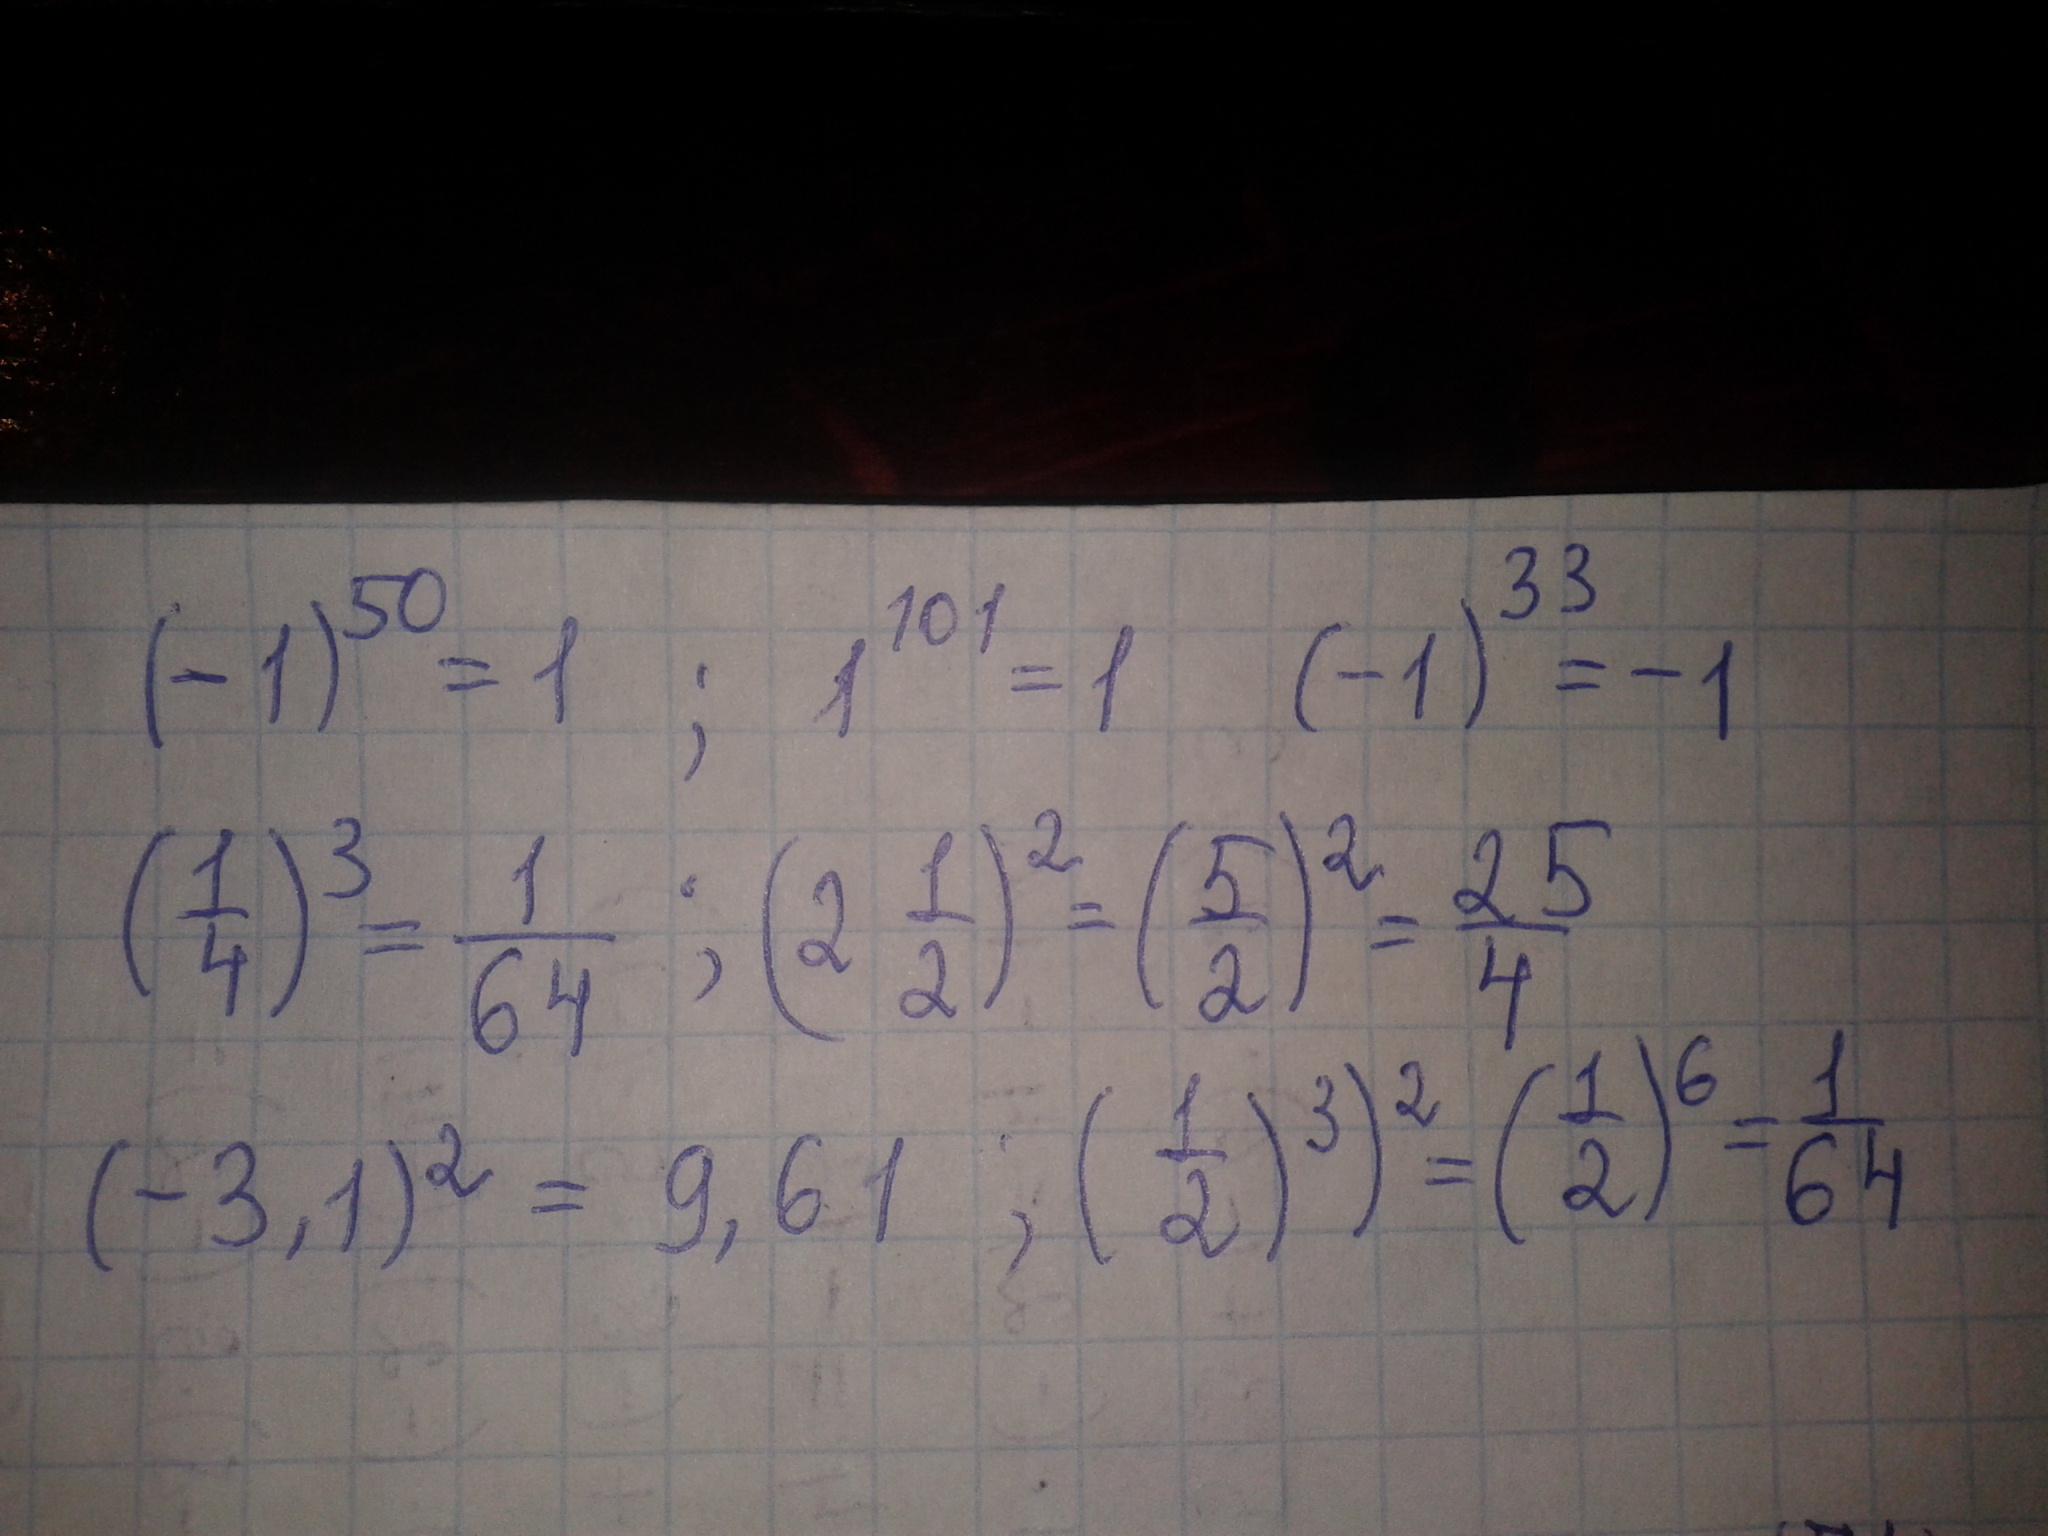 (-1)^50 = 1 ; 1^101 = 1 (-1)^33 = -1
(1/4)^3 = 1/64 ; (2 1/2)^2 = (5/2)^2 = 25/4
(-3,1)^2 = 9,61 ; (1/2)^3)^2 = (1/2)^6 = 1/64